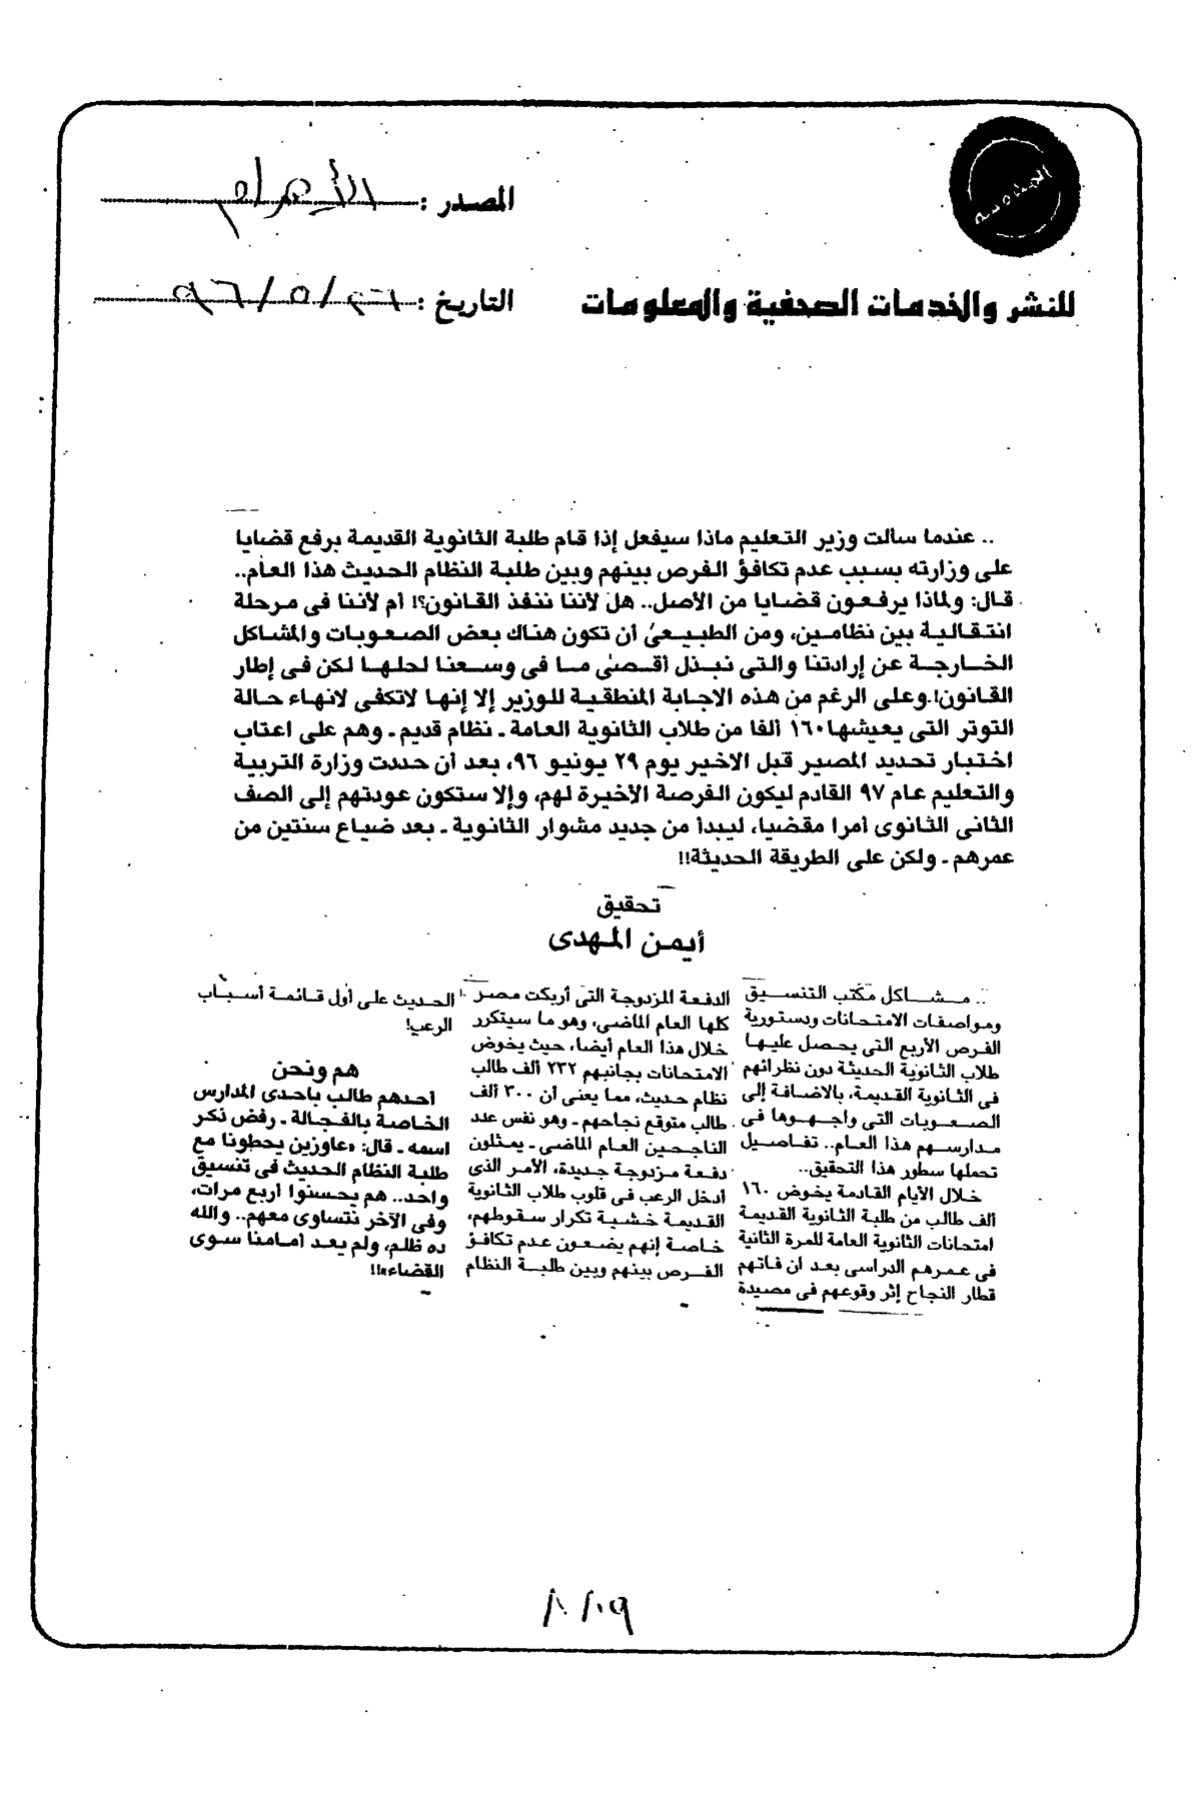 المصدر : الأهرام
للنشر والخدمات الصحفية والمعلومات
التاريخ : ٢٦/٥/٩٦
.. عندما سألت وزير التعليم ماذا سيفعل إذا قام طلبة الثانوية القديمة برفع قضايا
على وزارته بسبب عدم تكافؤ الفرص بينهم وبين طلبة النظام الحديث هذا العام..
قال: ولماذا يرفعون قضايا من الأصل.. هل لأننا ننفذ القانون؟! أم لأننا فى مرحلة
انتقالية بين نظامين، ومن الطبيعى أن تكون هناك بعض الصعوبات والمشاكل
الخارجة عن إرادتنا والتى نبذل أقصى ما فى وسعنا لحلها لكن فى إطار
القانون!.وعلى الرغم من هذه الاجابة المنطقية للوزير إلا إنها لاتكفى لانهاء حالة
التوتر التى يعيشها١٦٠ ألفا من طلاب الثانوية العامة ـ نظام قديم ـ وهم على اعتاب
اختبار تحديد المصير قبل الاخير يوم ٢٩ يونيو ٩٦، بعد أن حددت وزارة التربية
والتعليم عام ٩٧ القادم ليكون الفرصة الأخيرة لهم، وإلا ستكون عودتهم إلى الصف
الثانى الثانوى أمرا مقضيا، ليبدأ من جديد مشوار الثانوية ـ بعد ضياع سنتين من
عمرهم ـ ولكن على الطريقة الحديثة!!
تحقيق
أيمن المهدى
.. مشاكل مكتب التنسيق
ومواصفات الامتحانات ودستورية
الفرص الأربع التى يحصل عليها
طلاب الثانوية الحديثة دون نظرائهم
فى الثانوية القديمة، بالاضافة إلى
الصعوبات التى واجهوها فى
مدارسهم هذا العام.. تفاصيل
تحملها سطور هذا التحقيق..
خلال الأيام القادمة يخوض ١٦٠
ألف طالب من طلبة الثانوية القديمة
امتحانات الثانوية العامة للمرة الثانية
فى عمرهم الدراسى بعد ان فاتهم
قطار النجاح إثر وقوعهم فى مصيدة
الدفعة المزدوجة التى أربكت مصر
كلها العام الماضى، وهو ما سيتكرر
خلال هذا العام أيضا، حيث يخوض
الامتحانات بجانبهم ٢٣٢ ألف طالب
نظام حديث، مما يعنى أن ٣٠٠ ألف
طالب متوقع نجاحهم ـ وهو نفس عدد
الناجحين العام الماضى ـ يمثلون
دفعة مزدوجة جديدة، الأمر الذى
أدخل الرعب فى قلوب طلاب الثانوية
القديمة خشية تكرار سقوطهم،
خاصة إنهم يضعون عدم تكافؤ
الفرص بينهم وبين طلبة النظام
الحديث على أول قائمة أسباب
الرعب!
هم ونحن
أحدهم طالب باحدى المدارس
الخاصة بالفجالة ـ رفض ذكر
اسمه ـ قال: «عاوزين يحطونا مع
طلبة النظام الحديث فى تنسيق
واحد.. هم يحسنوا أربع مرات،
وفى الآخر نتساوى معهم.. والله
ده ظلم، ولم يعد أمامنا سوى
القضاء»!!